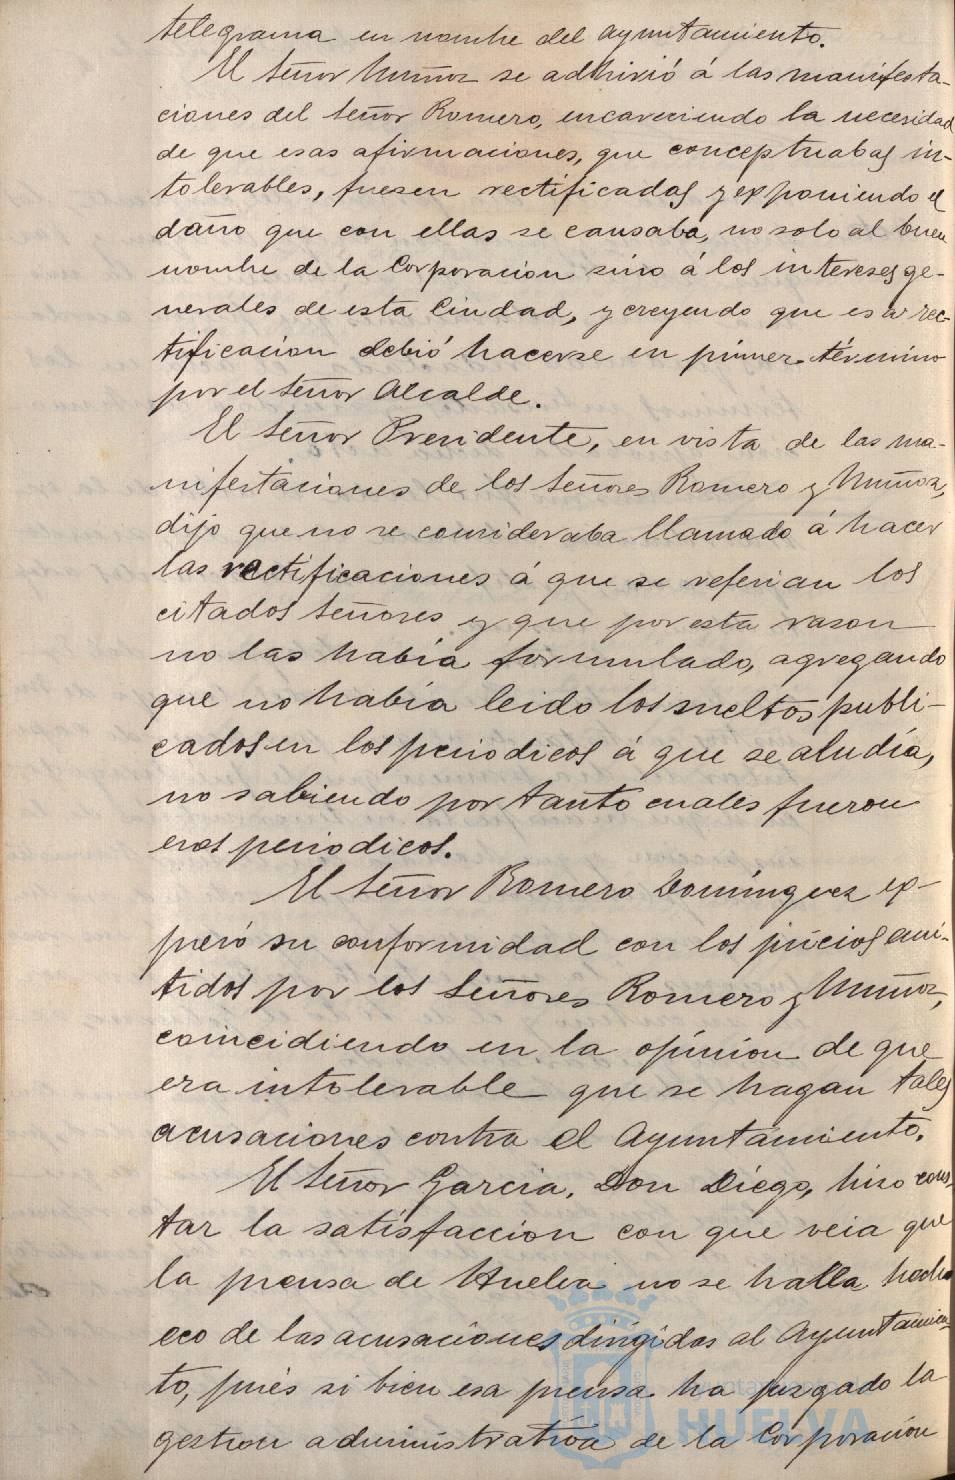 telegrama en nombre del ayuntamiento.
El Señor Muñoz se adhirió á las manifesta-
ciones del Señor Romero, encareciendo la necesidad
de que esas afirmaciones, que conceptuabas in-
tolerables, fuesen rectificadas y exponiendo el
daño que con ellas se causaba, no solo al buen
nombre de la Corporacion sino á los intereses ge-
nerales de esta Ciudad, y creyendo que esa rec-
tificacion debió hacerse en primer término
por el Señor Alcalde.
El Señor Presidente, en vista de las ma-
nifestaciones de los Señores Romero y Muñoz,
dijo que no se consideraba llamado á hacer
las rectificaciones á que se referian los
citados Señores y que por esta razon
no las había formulado, agregando
que no había leido los sueltos publi-
cados en los periodicos á que se aludía,
no sabiendo por tanto cuales fueron
esos periodicos.
El Señor Romero Domínguez ex-
presó su conformidad con los juicios emi-
tidos por los Señores Romero y Muñoz,
coincidiendo en la opinion de que
era intolerable que se hagan tales
acusaciones contra el Ayuntamiento.
El Señor Garcia, Don Diego, hizo cons-
tar la satisfaccion con que veia que
la prensa de Huelva no se halla hecho
eco de las acusaciones dirigidas al Ayuntamien-
to, pués si bien esa prensa ha juzgado la
gestion administrativa de la Corporación
HUELVA